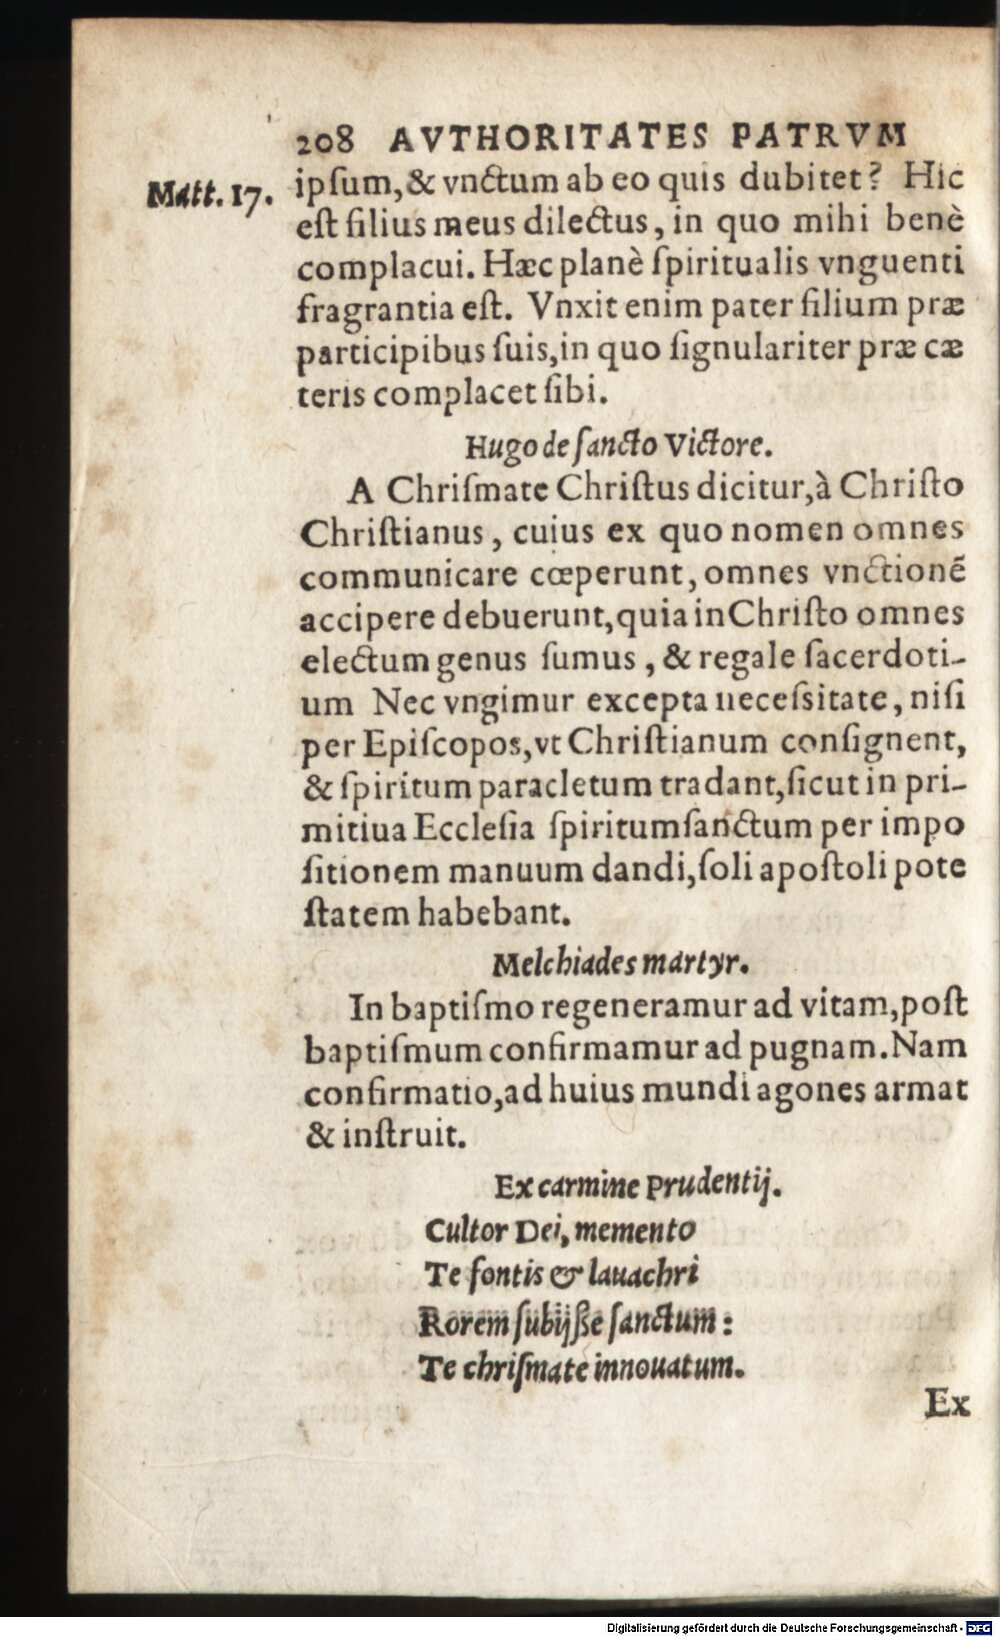 208 AVTHORITATES PATRVM
Matt. 17.
ipſum, & vnctum ab eo quis dubitet? Hic
eſt filius meus dilectus, in quo mihi benè
complacui. Hæc planè ſpiritualis vnguenti
fragrantia eſt. Vnxit enim pater filium præ
participibus ſuis, in quo ſignulariter præ cæ
teris complacet ſibi.
Hugo de ſancto Victore.
A Chriſmate Chriſtus dicitur, à Chriſto
Chriſtianus, cuius ex quo nomen omnes
communicare cœperunt, omnes vnctionẽ
accipere debuerunt, quia in Chriſto omnes
electum genus ſumus, & regale ſacerdoti-
um Nec vngimur excepta neceſsitate, niſi
per Epiſcopos, vt Chriſtianum conſignent,
& ſpiritum paracletum tradant, ſicut in pri-
mitiua Eccleſia ſpiritumſanctum per impo
ſitionem manuum dandi, ſoli apoſtoli pote
ſtatem habebant.
Melchiades martyr.
In baptiſmo regeneramur ad vitam, poſt
baptiſmum confirmamur ad pugnam. Nam
confirmatio, ad huius mundi agones armat
& inſtruit.
Ex carmine Prudentij.
Cultor Dei, memento
Te fontis & lauachri
Rorem ſubijſſe ſanctum:
Te chriſmate innouatum.
Ex
Digitalisierung gefördert durch die Deutsche Forschungsgemeinschaft - DFG